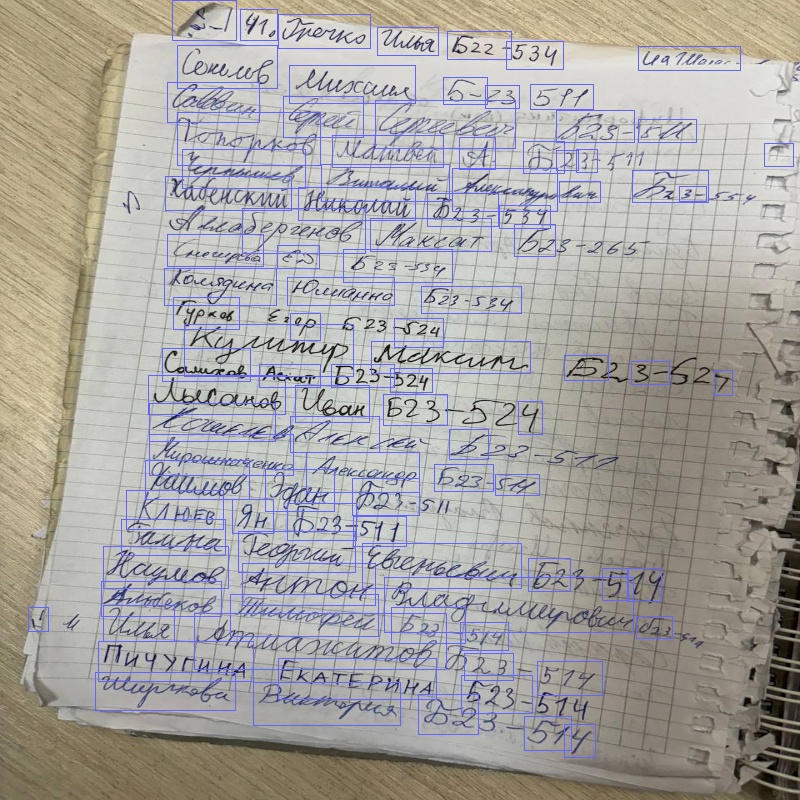 41. Гречко Илья Б22-534
Михаил Б-23 511
Саввин Сергей Сергеевич Б23-511
Топорков Матвей А. Б23-511
Чернышев Виталий Александрович Б23-554
Хабенский Николай Б23-534
Аллабергенов Максат Б23-265
Б23-534
Колядина Юлианна Б23-534
Гурков Егор Б23-524
Кушнир Максим Б23-524
Салихов Асхат Б23-524
Лысанов Иван Б23-524
Алексей Б23-511
Мирошниченко Александр Б23-511
Хаимов Эдан Б23-511
Клюев Ян Б23-511
Георгий Б23-514
Наумов Антон Владимирович Б23-514
Тимофей Б23-514
Илья Атмажитов Б23-514
Пичугина Екатерина Б23-514
Ширчкова Виктория Б23-514